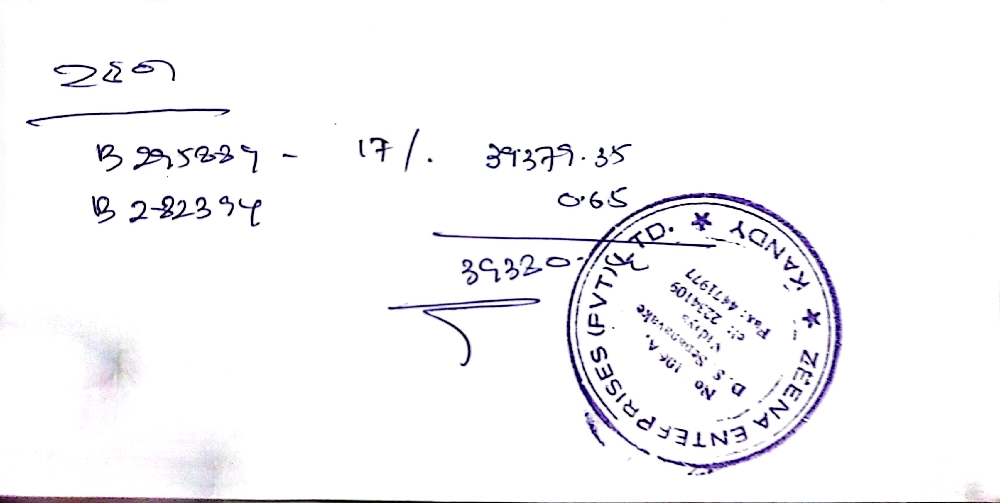 B 295889 - 17/. 39379.35
B 282394 0.65
39320.
ZEENA ENTERPRISES (PVT) LTD.
★ KANDY ★
No 106 A,
D. S Senanayake
Vidiya
el: 2234109
Fax: 4471977